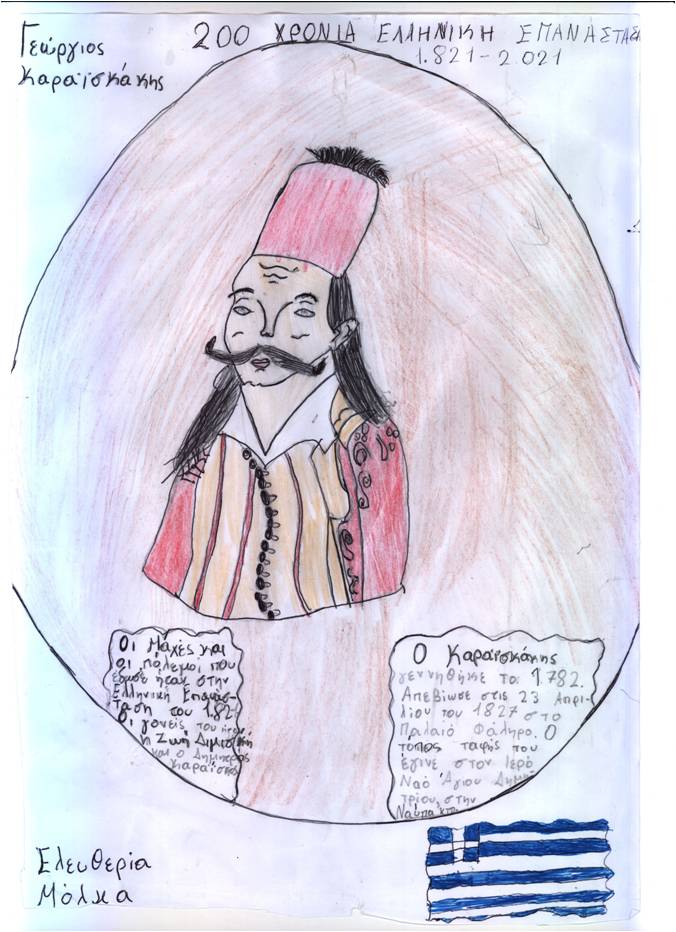 Γεώργιος
Καραϊσκάκης
200 ΧΡΟΝΙΑ ΕΛΛΗΝΙΚΗ ΕΠΑΝΑΣΤΑΣΗ
1.821-2.021
Οι Μάχες και
οι πόλεμοι που
έδωσε ήταν στην
Ελληνική Επανάσ-
ταση του 1.821
Οι γονείς του ήταν
η Ζωή
και ο Δημήτριος
Καραΐσκος
Ο Καραϊσκάκης
γεννήθηκε το 1782.
Απεβίωσε στις 23 Απρι-
λίου του 1827 στο
Παλαιό Φάληρο. Ο
τόπος ταφής του
έγινε στον Ιερό
Ναό Άγιου Δημη-
τρίου, στην
Ελευθερία
Μόλκα